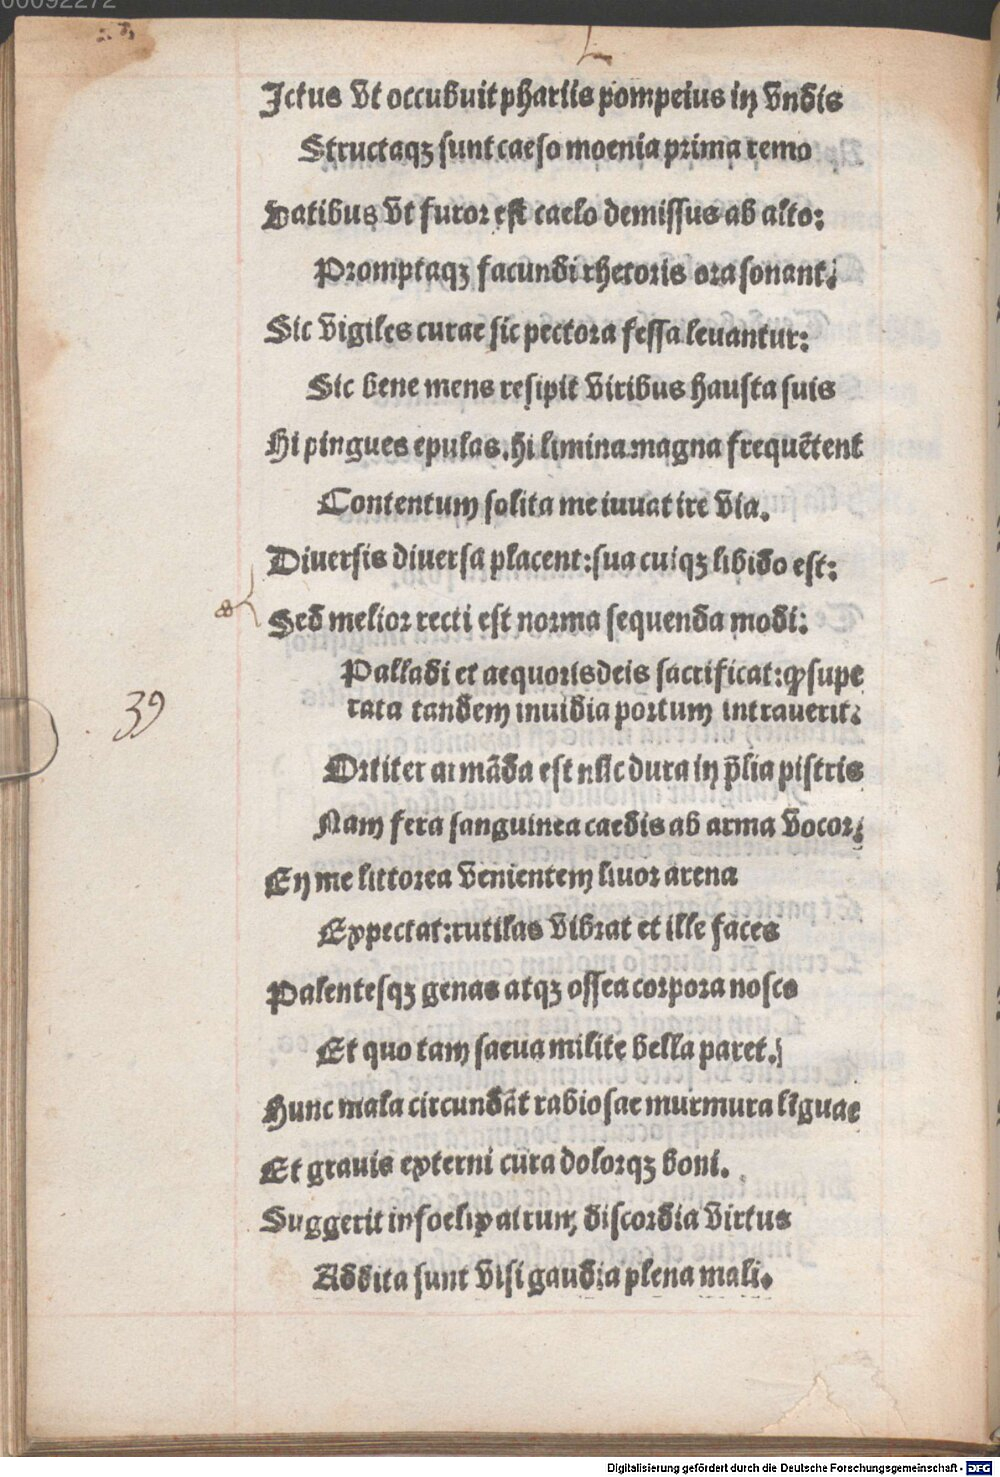 00092272
Ictus vt occubuit phariis pompeius in vndis
Structaqꝫ sunt caeso moenia prima remo
Vatibus vt furor est caelo demissus ab alto:
Promptaqꝫ facundi rhetoris ora sonant.
Sic vigiles curae sic pectora fessa leuantur:
Sic bene mens resipit viribus hausta suis
Hi pingues epulas. hi limina magna frequētent
Contentum solita me iuuat ire via.
Diuersis diuersa placent: sua cuiqꝫ libido est:
Sed melior recti est norma sequenda modi:
Palladi et aequoris deis sacrificat: ꝙ supe
rata tandem inuidia portum intrauerit.
39
Ortiter armāda est dura in p̄lia pistris
Nam fera sanguinea caedis ab arma vocor.
En me littorea venientem liuor arena
Expectat: rutilas vibrat et ille faces
Palentesqꝫ genas atqꝫ ossea corpora nosco
Et quo tam saeua milite bella paret.
Hunc mala circundāt rabiosae murmura līguae
Et grauis externi cura dolorqꝫ boni.
Suggerit infoelix atrum discordia virtus
Addita sunt visi gaudia plena mali.
Digitalisierung gefördert durch die Deutsche Forschungsgemeinschaft - DFG